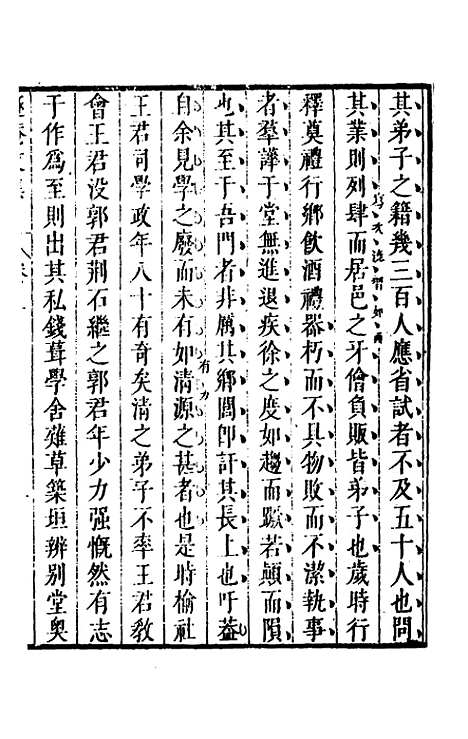 其弟子之籍幾三百人應省試者不及五十人也問
其業則列肆而居邑之牙儈負販皆弟子也歲時行
釋奠禮行鄉飲酒禮器朽而不具物敗而不潔執事
者羣譁于堂無進退疾徐之度如趨而蹶若顛而隕
也其至于吾門者非厲其鄉閭卽訐其長上也吁葢
自余見學之廢而未有如清源之甚者也是時榆社
有力
王君司學政年八十有奇矣清之弟子不率王君敎
會王君没郭君荆石繼之郭君年少力强慨然有志
于作爲至則出其私錢葺學舍薙草築垣辨别堂奥